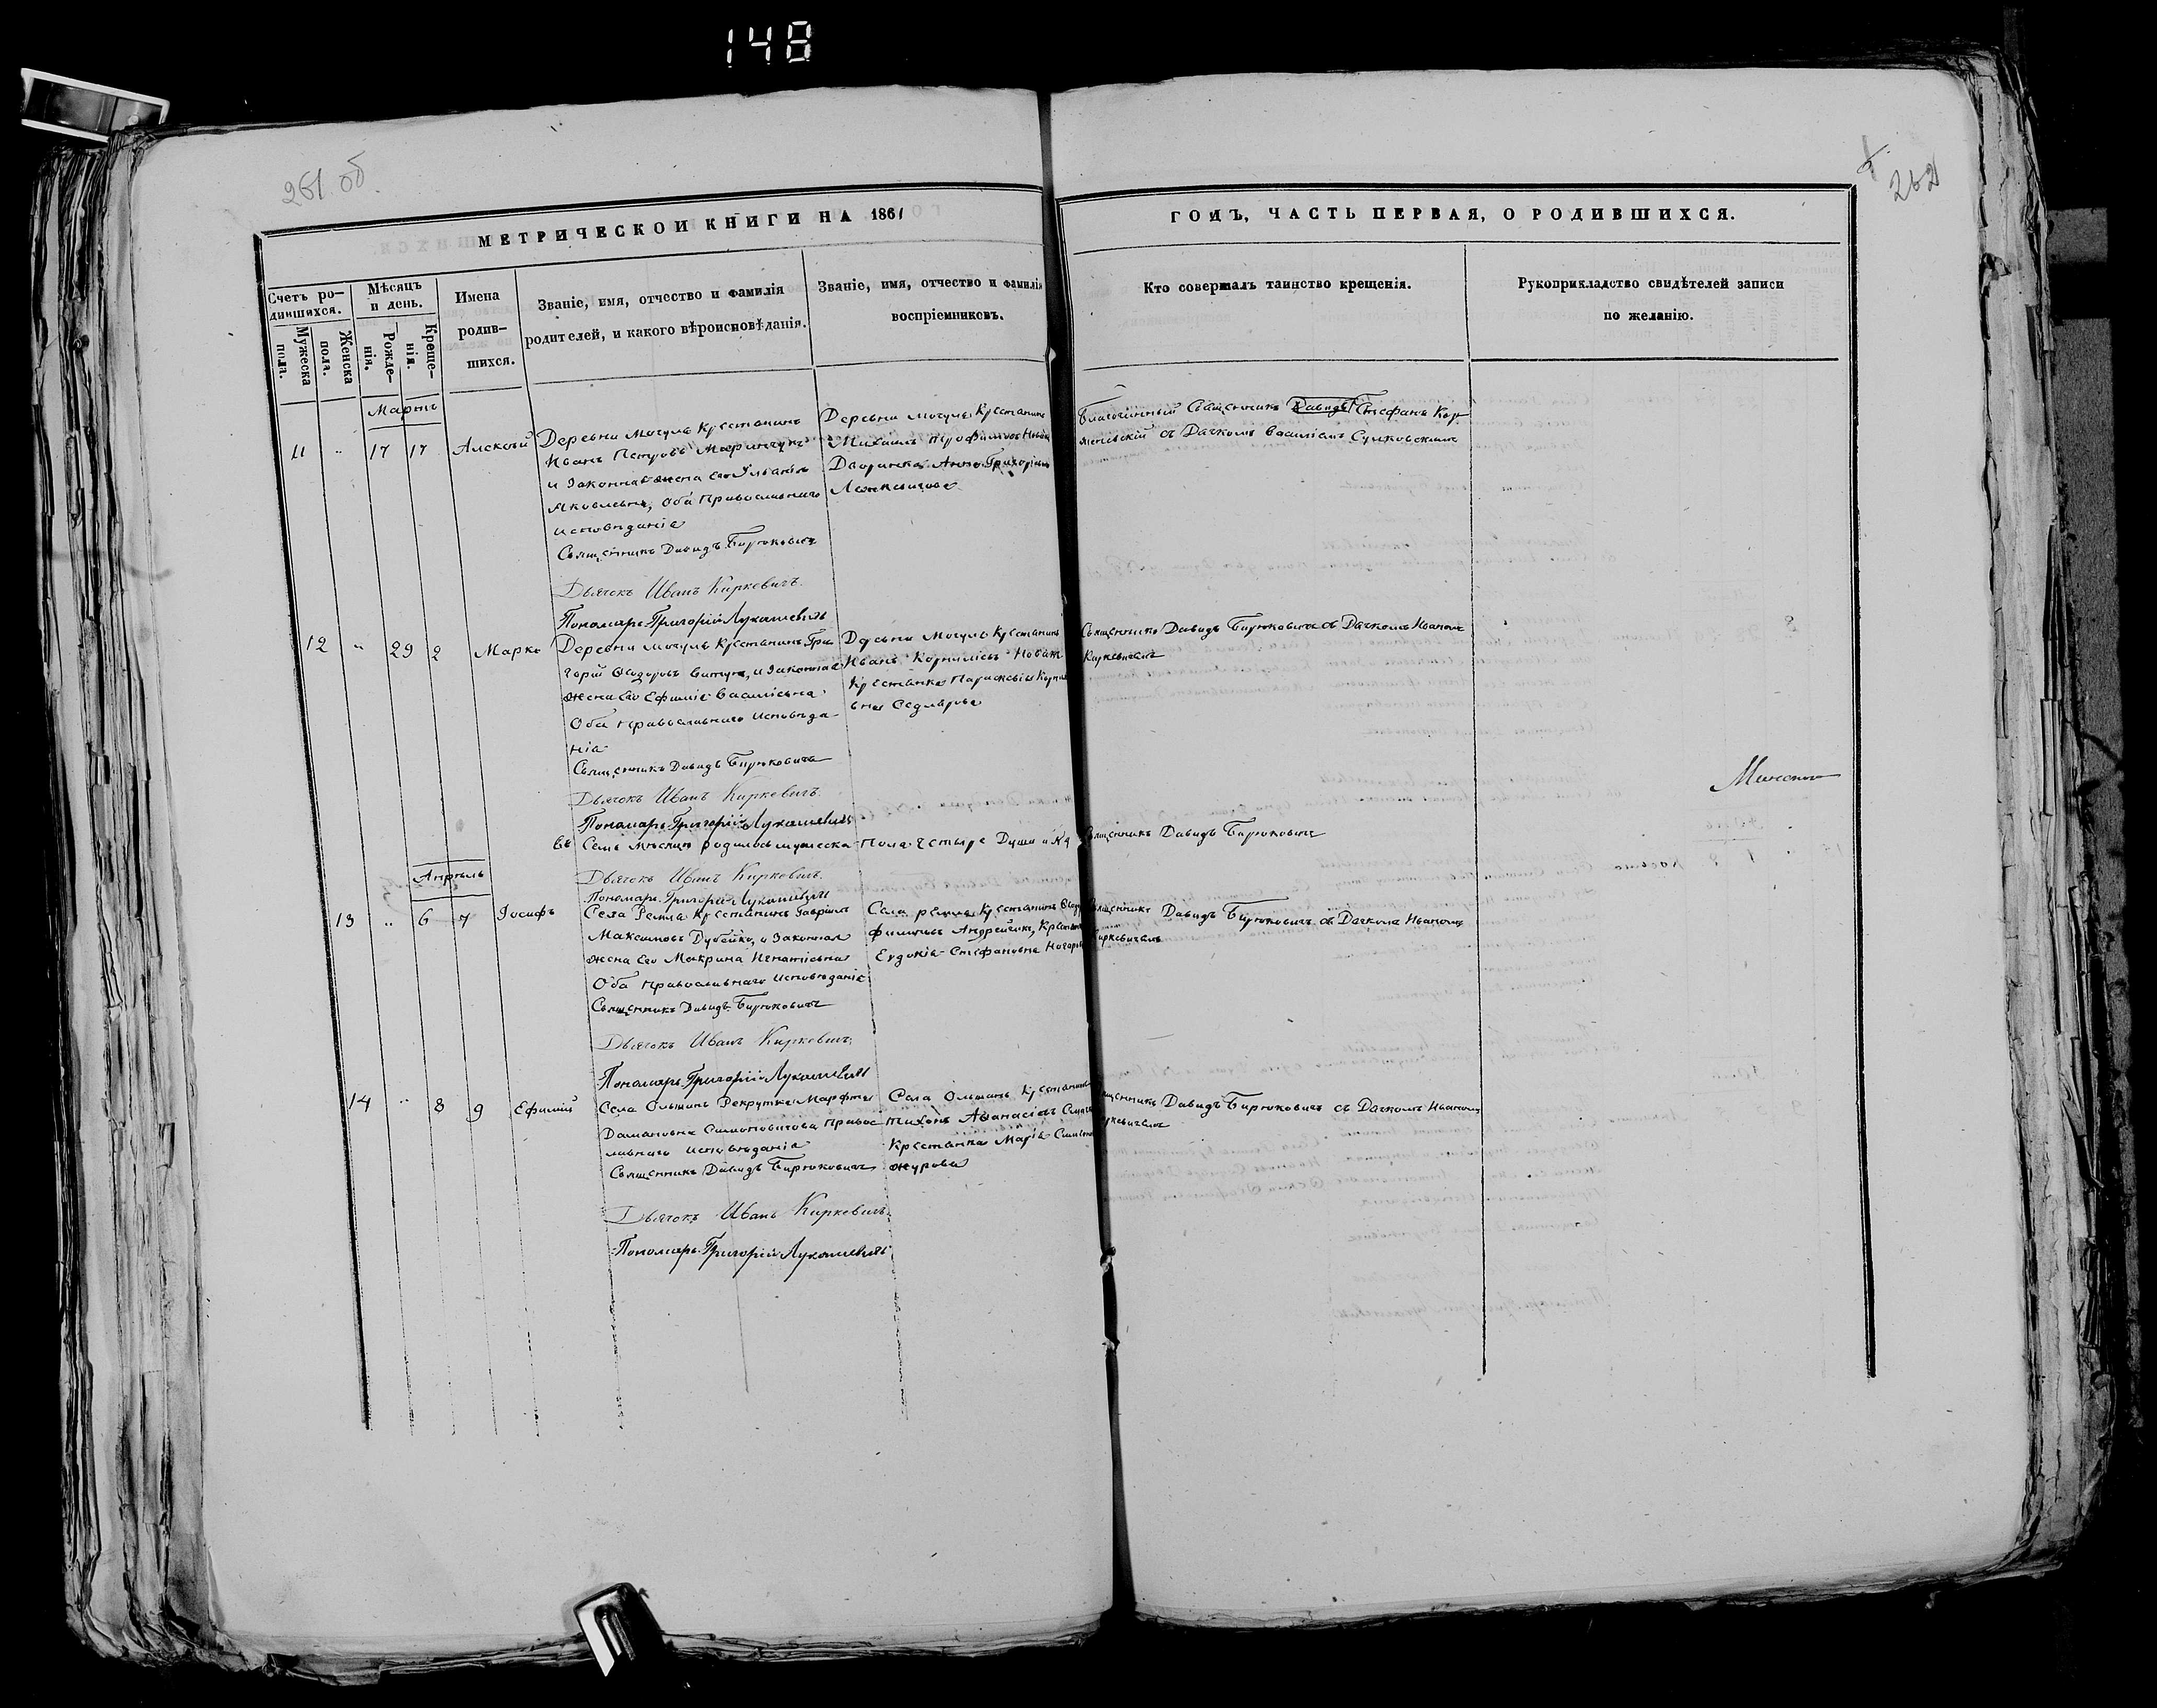 148
261 об.
262
МЕТРИЧЕСКОЙ КНИГИ НА 1861
ГОДЪ, ЧАСТЬ ПЕРВАЯ, О РОДИВШИХСЯ.
Счетъ ро-
дившихся.
Мужеска
пола.
Женска
пола.
Мѣсяцъ
и день.
Рожде-
нія.
Креще-
нія.
Имена
родив-
шихся.
Званіе, имя, отчество и фамилія
родителей, и какого вѣроисповѣданія.
Званіе, имя, отчество и фамилія
воспріемниковъ.
Кто совершалъ таинство крещенія.
Рукоприкладство свидѣтелей записи
по желанію.
Мартъ
11 " 17 17 Алексѣй
Деревни Мочуль Крестьянинъ
Иванъ Петровъ
и Законная жена его
Яковлевна, оба Православнаго
исповѣданія
Священникъ Давидъ Бирюковичъ
Дьячокъ Иванъ Киркевичъ.
Пономарь Григорій Лукашевичъ
Деревни Мочуль Крестьянинъ
Михаилъ Трофимовъ
Дворянка Анна Григорьевна
Благочинный Священникъ Давидъ Стефанъ Кор-
съ Дьячкомъ Василіемъ Сулковскимъ
12 " 29 2 Марко
Деревни Мочуль Крестьянинъ Гри-
горій Ѳеодоровъ и Законная
жена его Ефимія Васильевна
Оба Православнаго Исповѣда-
нія
Священникъ Давидъ Бирюковичъ
Дьячокъ Иванъ Киркевичъ.
Пономарь Григорій Лукашевичъ
Деревни Мочуль Крестьянинъ
Иванъ Корниліевъ Новик
Крестьянка Параскевія
Священникъ Давидъ Бирюковичъ съ Дьячкомъ Иваномъ
Киркевичемъ
Въ Семъ Мѣсяцѣ родилось мужеска пола четыре Души
Священникъ Давидъ Бирюковичъ
Дьячокъ Иванъ Киркевичъ.
Пономарь Григорій Лукашевичъ
Апрѣль
13 " 6 7 Іосифъ
Села Ремля Крестьянинъ Гавріилъ
Максимовъ Дубейко, и Законная
жена его Макрина Игнатіевна
Оба Православнаго Исповѣданія
Священникъ Давидъ Бирюковичъ
Дьячокъ Иванъ Киркевичъ.
Пономарь Григорій Лукашевичъ
Села Ремля Крестьянинъ
Андрейчикъ,
Евдокія Стефановна
Священникъ Давидъ Бирюковичъ съ Дьячкомъ Иваномъ
Киркевичемъ
14 " 8 9 Ефимій
Села Ольшанъ Рекрутка Марфа
Дамановна Симоновичова Право-
лавнаго исповѣданія
Священникъ Давидъ Бирюковичъ
Дьячокъ Иванъ Киркевичъ.
Пономарь Григорій Лукашевичъ
Села Ольшанъ Крестьянинъ
Тихонъ Аѳанасіевъ
Крестьянка Марія
Священникъ Давидъ Бирюковичъ съ Дьячкомъ Иваномъ
Киркевичемъ